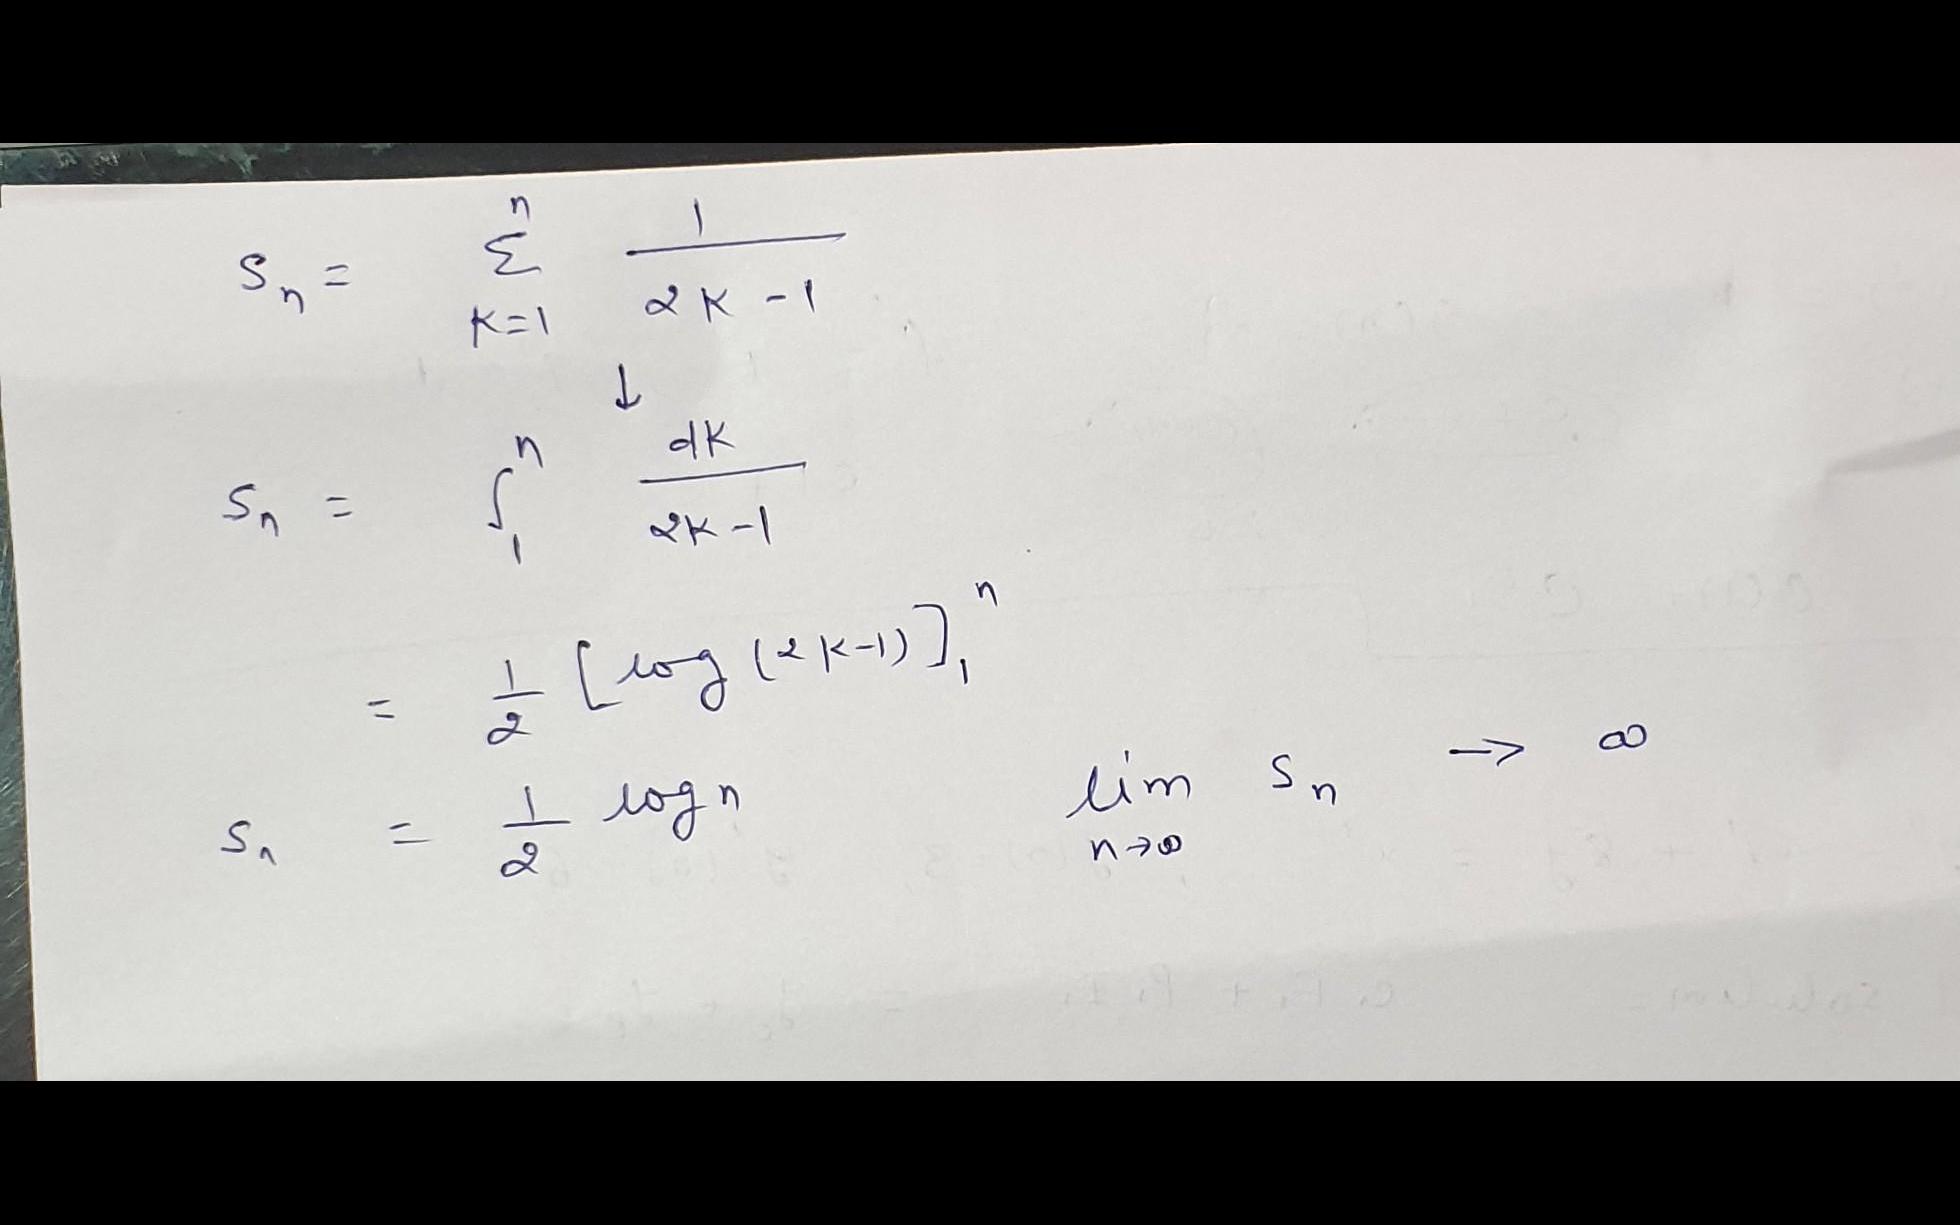 Sₙ = Σ_{K=1}^{n} 1/(2K-1)
↓
Sₙ = ∫₁ⁿ dK/(2K-1)
= 1/2 [log(2K-1)]₁ⁿ
Sₙ = 1/2 log n lim_{n→∞} Sₙ → ∞